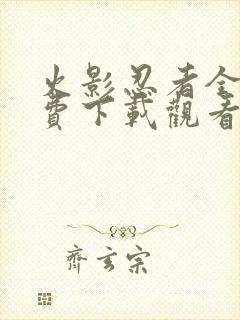 火影忍者全
費下載觀看
齊玄宗